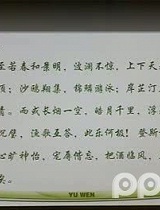 至若春和景明，波澜不惊，上下天
顷；沙鸥翔集，锦鳞游泳；岸芷汀
青。而或长烟一空，皓月千里，浮
沉璧，渔歌互答，此乐何极！登斯
心旷神怡，宠辱偕忘，把酒临风，
矣。
YU WEN
pp